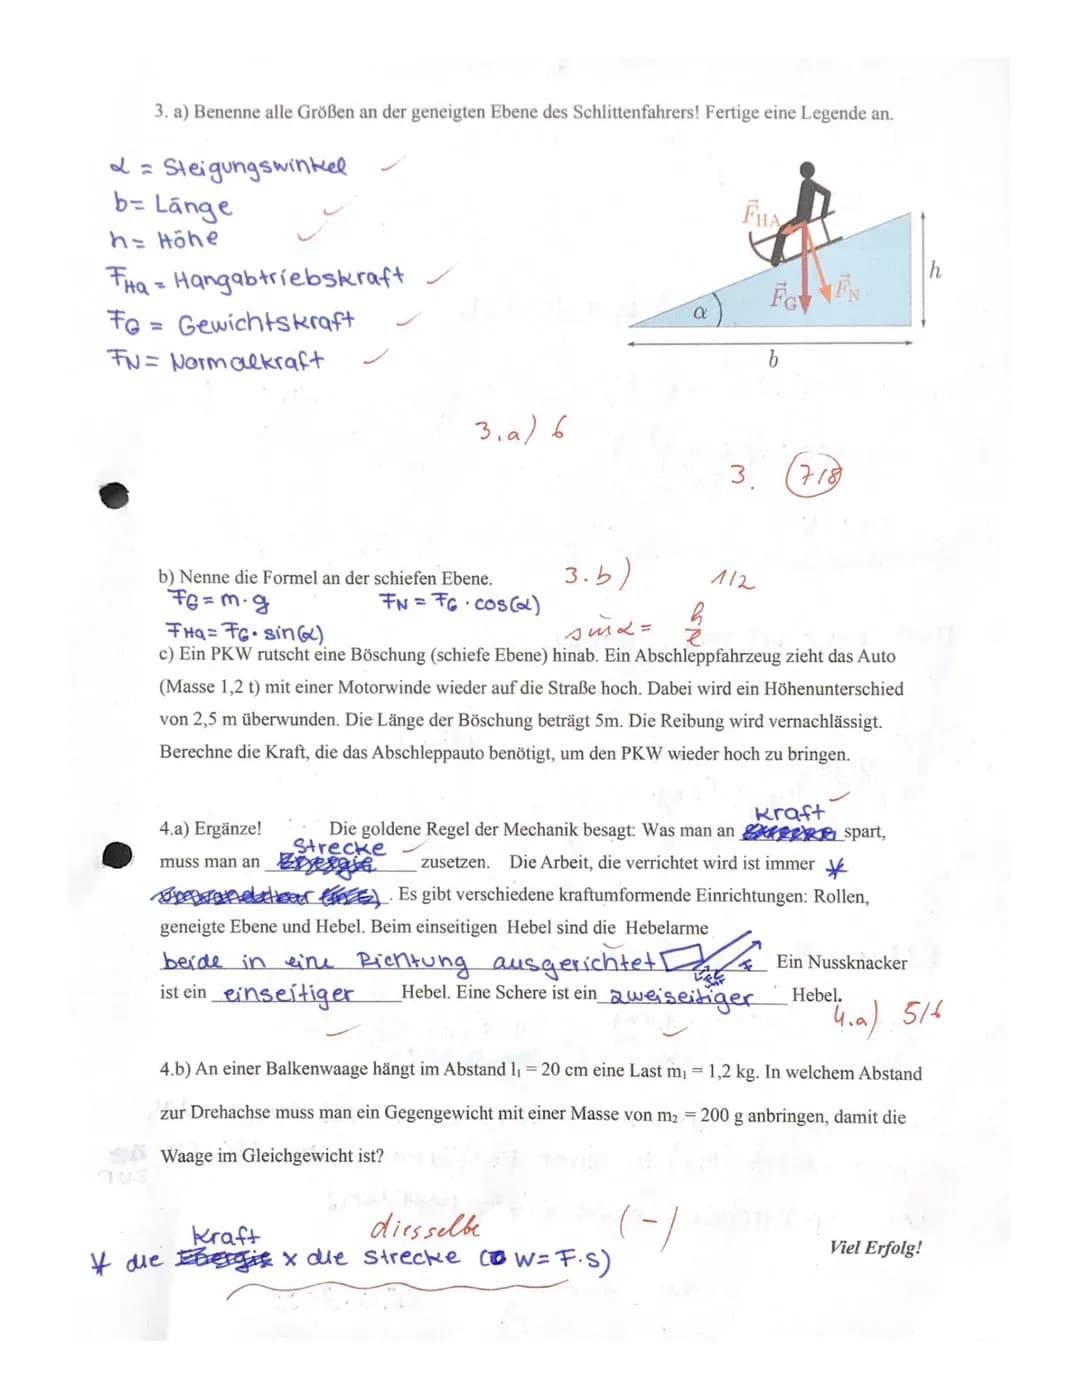 3. a) Benenne alle Größen an der geneigten Ebene des Schlittenfahrers! Fertige eine Legende an.
α = Steigungswinkel
b= Länge
h= Höhe
FHa = Hangabtriebskraft
FG = Gewichtskraft
FN = Normalkraft
FHA
FG
FN
α
h
b
3.a) 6
3. 7/8
b) Nenne die Formel an der schiefen Ebene.
3.b) 1/2
FG = m·g FN = FG · cos(α)
FHa = FG · sin(α)
sin α = h/l
c) Ein PKW rutscht eine Böschung (schiefe Ebene) hinab. Ein Abschleppfahrzeug zieht das Auto
(Masse 1,2 t) mit einer Motorwinde wieder auf die Straße hoch. Dabei wird ein Höhenunterschied
von 2,5 m überwunden. Die Länge der Böschung beträgt 5m. Die Reibung wird vernachlässigt.
Berechne die Kraft, die das Abschleppauto benötigt, um den PKW wieder hoch zu bringen.
4.a) Ergänze! Die goldene Regel der Mechanik besagt: Was man an Kraft spart,
muss man an Strecke zusetzen. Die Arbeit, die verrichtet wird ist immer
. Es gibt verschiedene kraftumformende Einrichtungen: Rollen,
geneigte Ebene und Hebel. Beim einseitigen Hebel sind die Hebelarme
beide in eine Richtung ausgerichtet Ein Nussknacker
ist ein einseitiger Hebel. Eine Schere ist ein zweiseitiger Hebel.
4.a) 5/6
4.b) An einer Balkenwaage hängt im Abstand l₁ = 20 cm eine Last m₁ = 1,2 kg. In welchem Abstand
zur Drehachse muss man ein Gegengewicht mit einer Masse von m₂ = 200 g anbringen, damit die
Waage im Gleichgewicht ist?
diesselbe (-)
die Kraft x die Strecke (W=F·s)
Viel Erfolg!